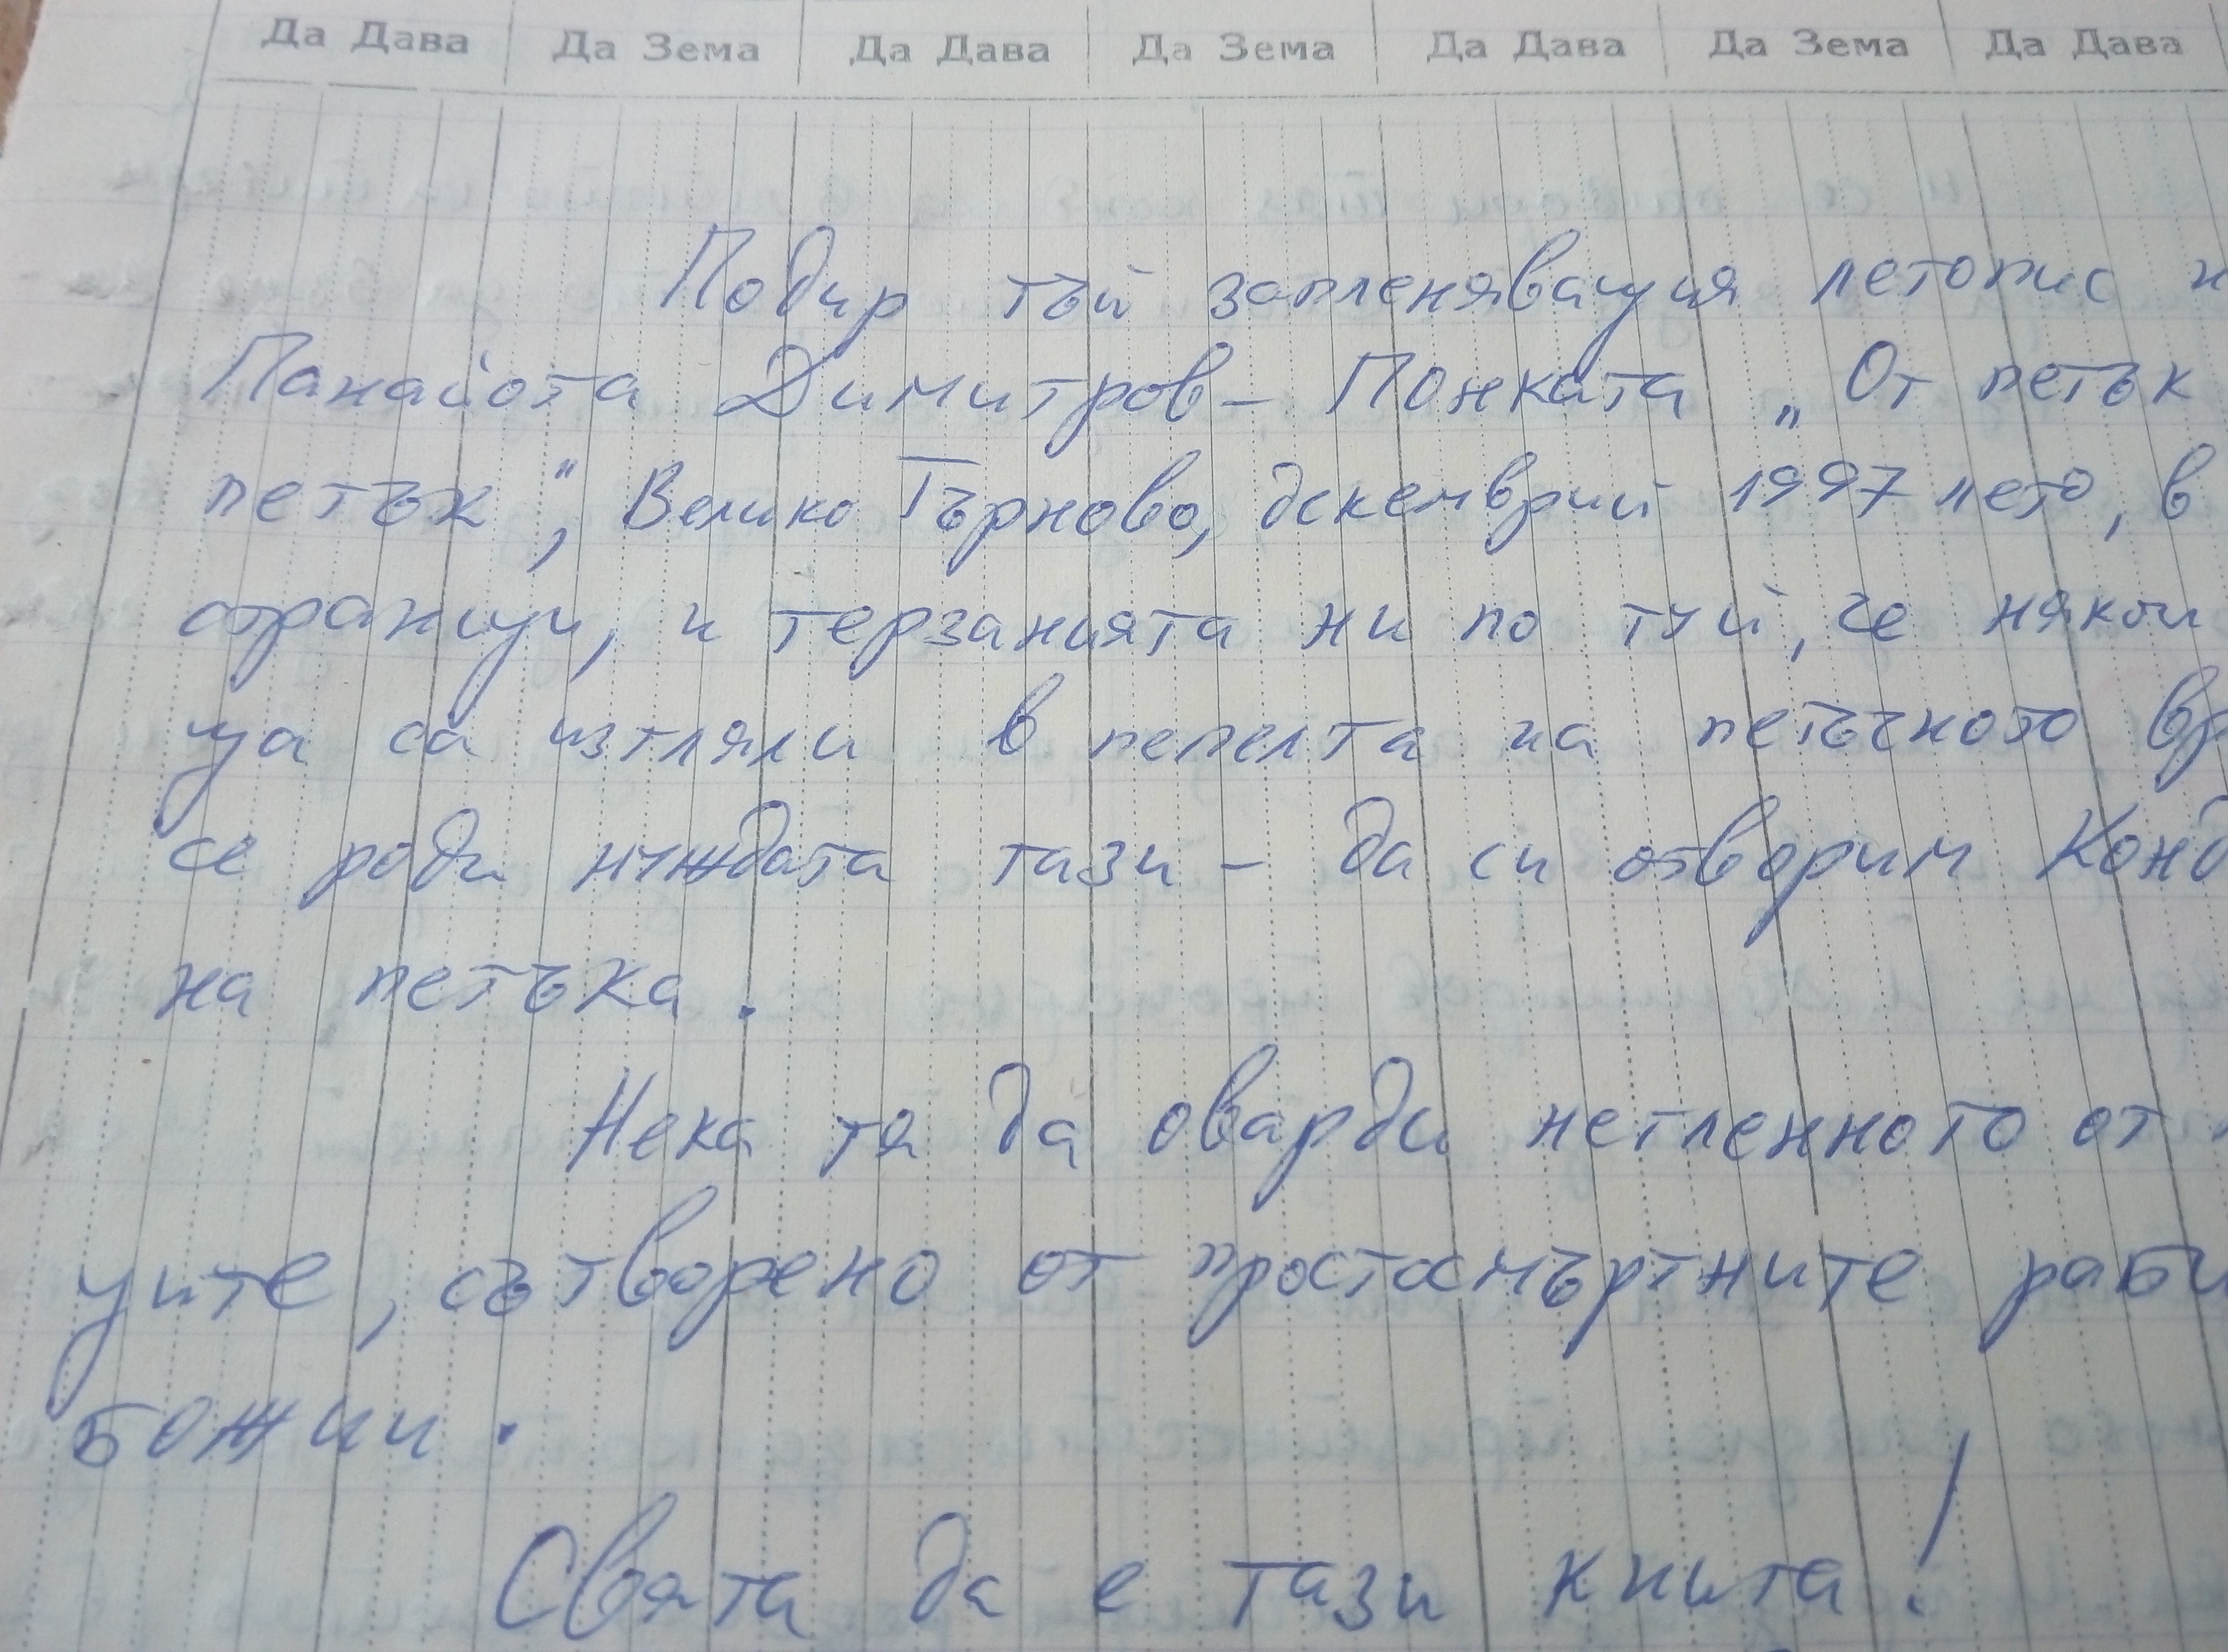 Да Дава Да Зема Да Дава Да Зема Да Дава Да Зема Да Дава
Подир тъй запленяващия летопис н
Панайота Димитров - Понката „От петък
петък", Велико Търново, декемврий 1997 лето, в
страници, и терзанията ни по туй, че някои
ца са изтляли в пепелта на петъчното вр
се роди нуждата тази - да си отворим Конд
на петъка.
Нека тя да оварди нетленното от
ците, сътворено от простосмъртните раби
божии.
Свята да е тази книга!